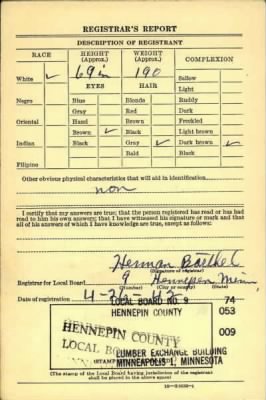 REGISTRAR'S REPORT
DESCRIPTION OF REGISTRANT
RACE HEIGHT (Approx.) WEIGHT (Approx.) COMPLEXION
White ✓ 69 in 190 Sallow
EYES HAIR Light
Negro Blue Blonde Ruddy
Gray Red Dark
Oriental Hazel Brown Freckled
Brown ✓ Black Light brown
Indian Black Gray ✓ Dark brown ✓
Bald Black
Filipino
Other obvious physical characteristics that will aid in identification
non
I certify that my answers are true; that the person registered has read or has had
read to him his own answers; that I have witnessed his signature or mark and that
all of his answers of which I have knowledge are true, except as follows:
Herman
(Signature of registrar)
Registrar for Local Board 9 Hennepin Minn
(Number) (City or county) (State)
Date of registration 4-26-42
LOCAL BOARD NO. 9 74
HENNEPIN COUNTY 053
009
HENNEPIN COUNTY
LOCAL BO
LUMBER EXCHANGE BUILDING
MINNEAPOLIS 1, MINNESOTA
(The stamp of the Local Board having jurisdiction of the registrant
shall be placed in the above space)